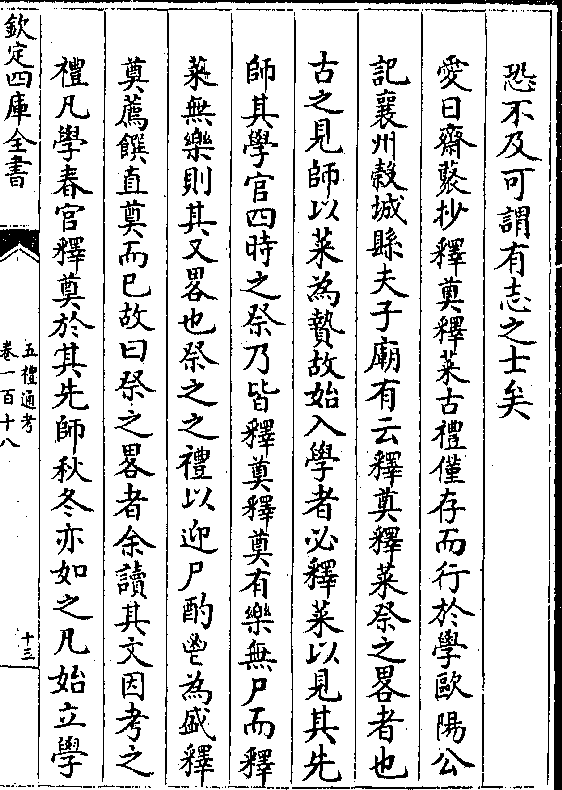 恐不及可謂有志之士矣
愛日齋藂抄釋奠釋菜古禮僅存而行於學歐陽公
記襄州榖城縣夫子廟有云釋奠釋菜祭之畧者也
古之見師以菜為贄故始入學者必釋菜以見其先
師其學官四時之祭乃皆釋奠釋奠有樂無尸而釋
菜無樂則其又畧也祭之之禮以迎尸酌鬯為盛釋
奠薦饌直奠而已故曰祭之畧者余讀其文因考之
禮凡學春官釋奠於其先師秋冬亦如之凡始立學
欽定四庫全書
五禮通考
卷一百十八
十三